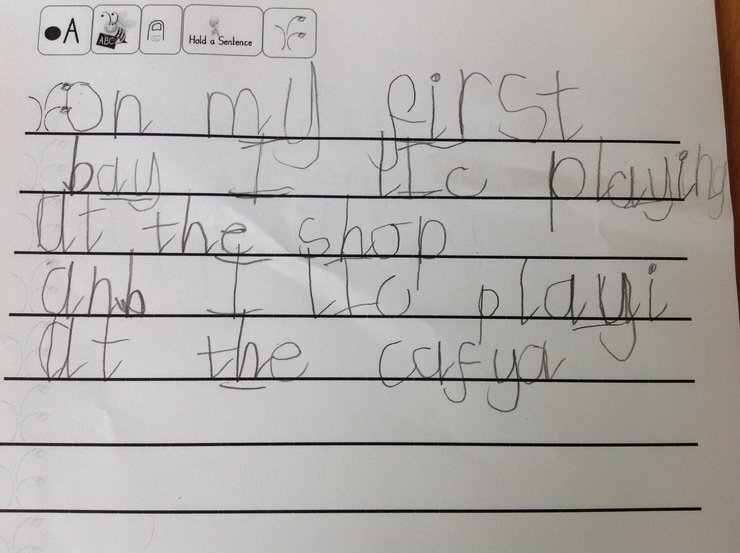 A ABC Hold a Sentence
On my first
bay I LIC playing
at the shop
anb I LIC playi
at the cafya